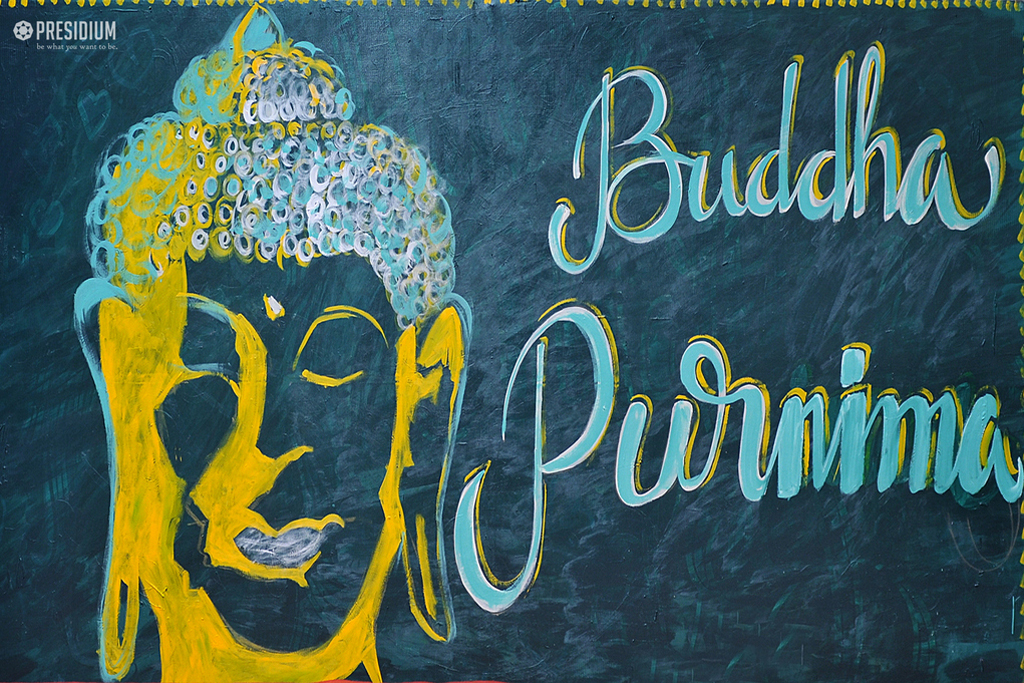 PRESIDIUM
be what you want to be.
Buddha
Purnima